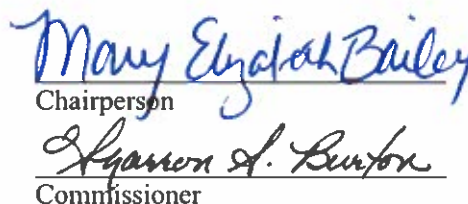 Mary Elizabeth Bailey
Chairperson
Sharron S. Burton
Commissioner